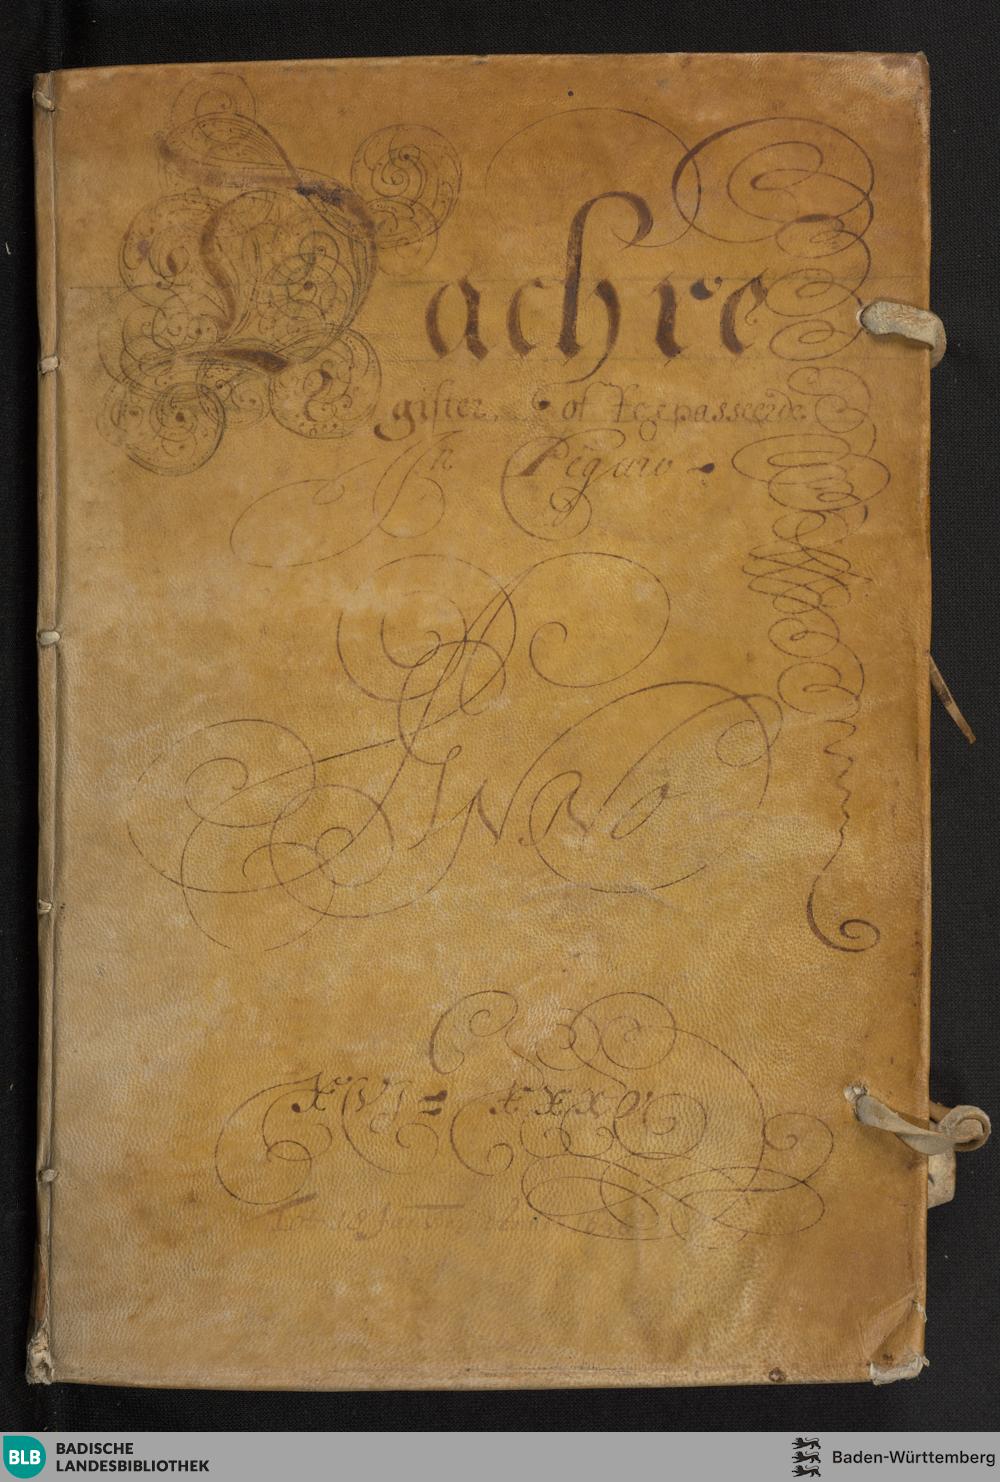 Dachre
gister. of Tgepasseerde
In Pegaw
ANNO
XVJ= XXXV
BLB
BADISCHE
LANDESBIBLIOTHEK
Baden-Württemberg